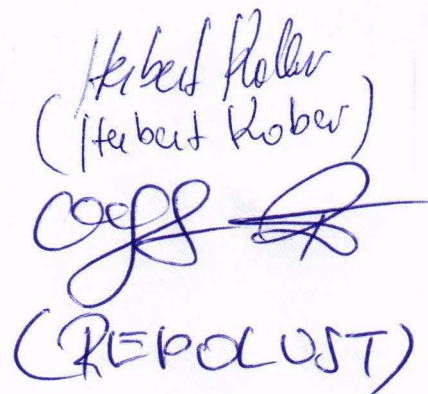 Herbert Kober
(Herbert Kober)
(REPOLUST)